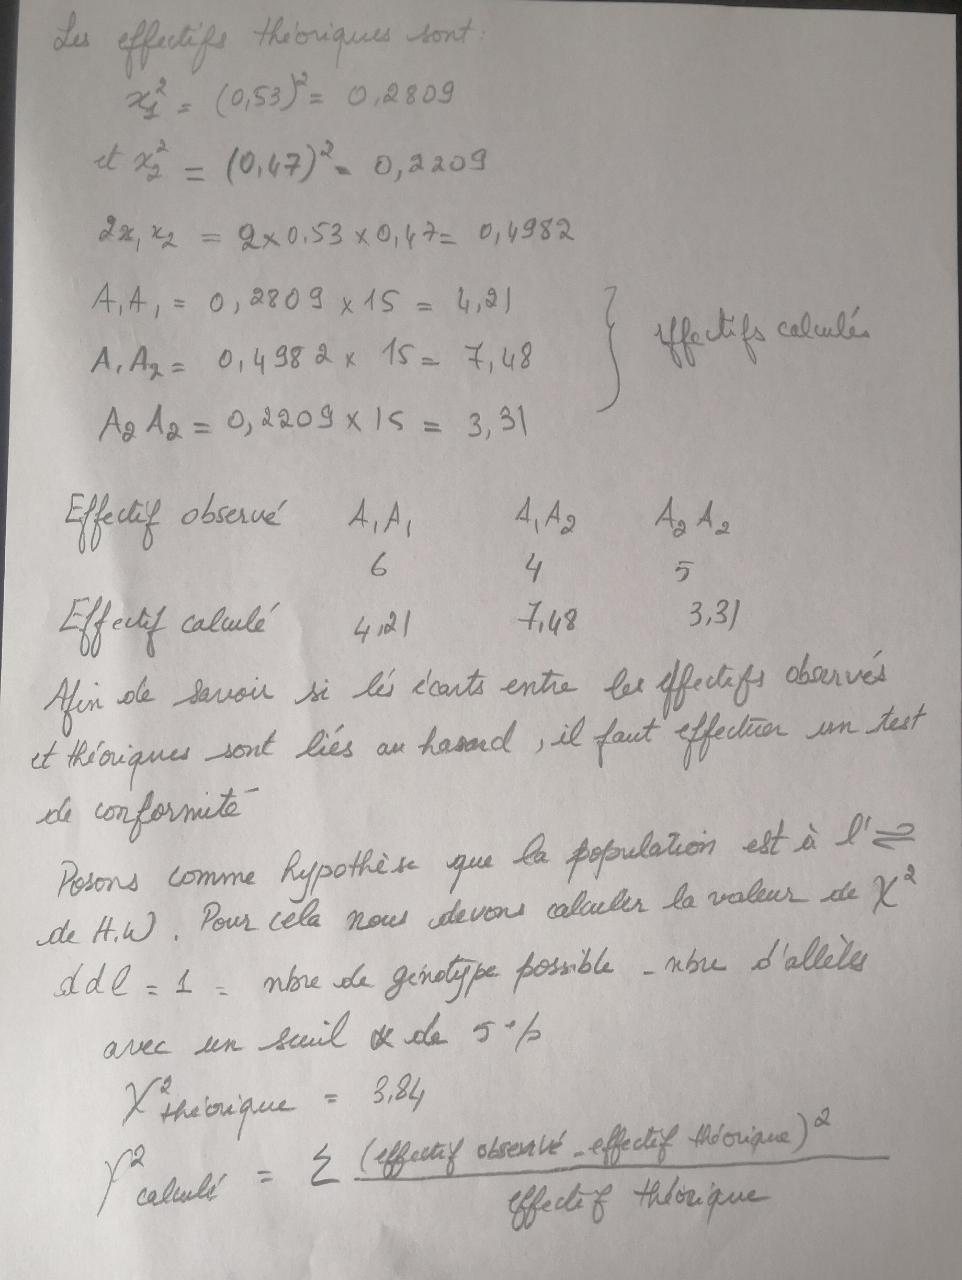 Les effectifs théoriques sont:
x₁² = (0,53)² = 0,2809
et x₂² = (0,47)² = 0,2209
2x₁x₂ = 2×0.53×0,47= 0,4982
A₁A₁ = 0,2809 × 15 = 4,21
A₁A₂ = 0,4982 × 15 = 7,48 } effectifs calculés
A₂A₂ = 0,2209 × 15 = 3,31
Effectif observé A₁A₁ A₁A₂ A₂A₂
6 4 5
Effectif calculé 4,21 7,48 3,31
Afin de savoir si lés écarts entre les effectifs observés
et théoriques sont liés au hasard, il faut effectuer un test
de conformité
Posons comme hypothèse que la population est à l'⇌
de H.W. Pour cela nous devons calculer la valeur de X²
ddl = 1 = nbre de génotype possible - nbre d'allèles
avec un seuil α de 5%
X² théorique = 3,84
X² calculé = Σ (effectif observé - effectif théorique)²
effectif théorique